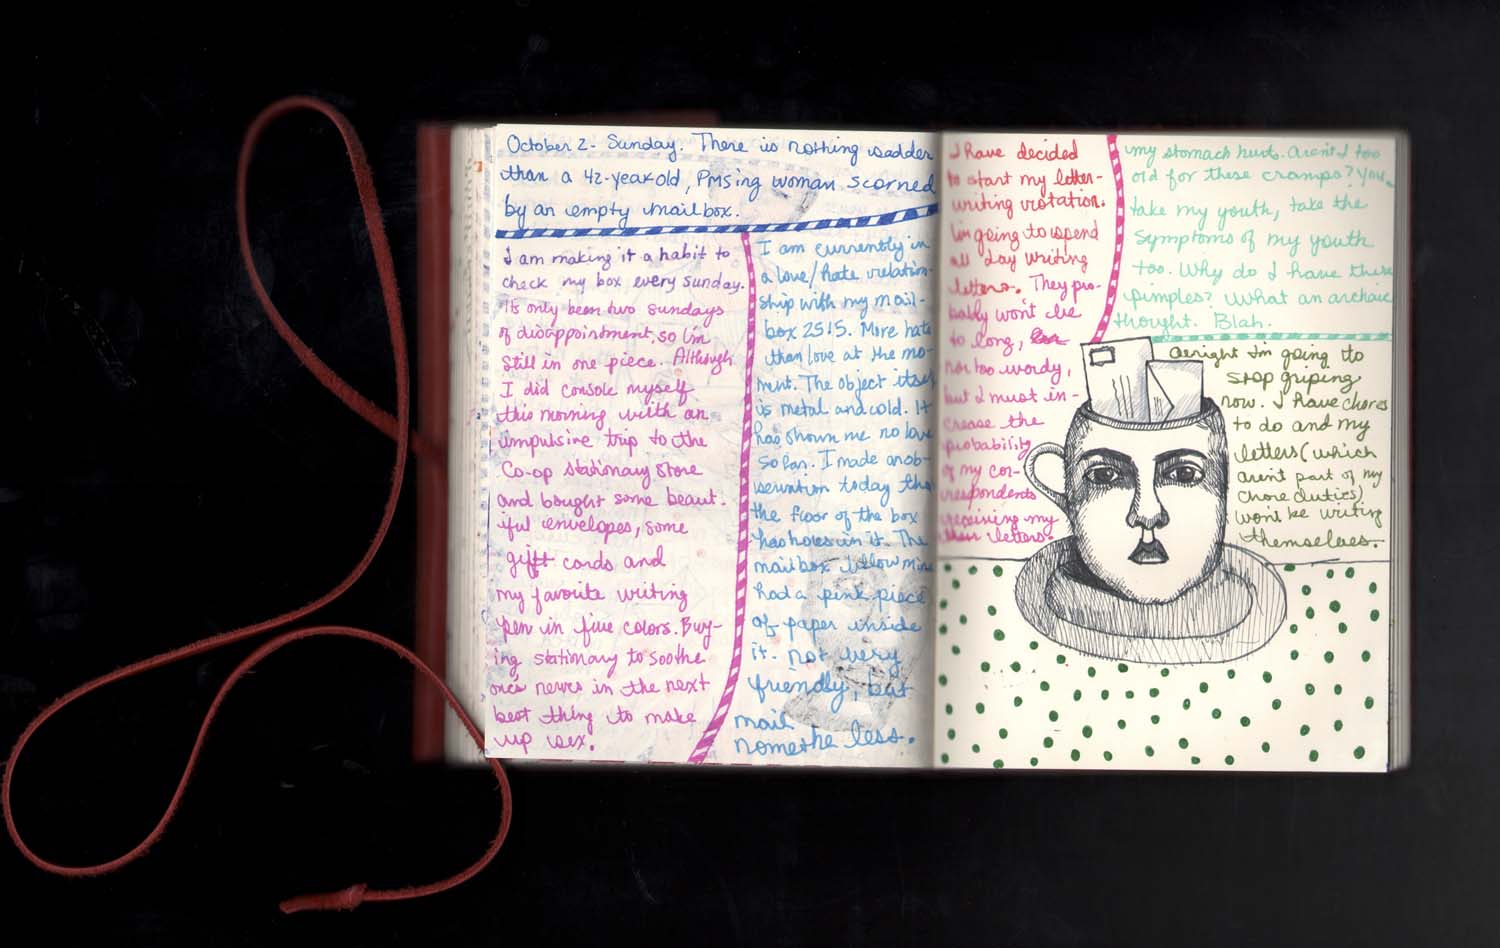 October 2- Sunday. There is nothing sadder
than a 42-year old, PMSing woman scorned
by an empty mailbox.
I am making it a habit to
check my box every sunday.
It's only been two sundays
of disappointment, so I'm
still in one piece. Although
I did console myself
this morning with an
impulsive trip to the
Co-op stationary store
and bought some beaut-
iful envelopes, some
gift cards and
my favorite writing
pen in five colors. Buy-
ing stationary to soothe
one's nerves is the next
best thing to make
up sex.
I am currently in
a love/hate relation-
ship with my mail-
box 2515. More hate
than love at the mo-
ment. The object itself
is metal and cold. It
has shown me no love
so far. I made an ob-
servation today tha
the floor of the box
has holes in it. The
mailbox below mine
had a pink piece
of paper inside
it. not very
friendly, but
mail
nonethe less.
I have decided
to start my letter-
writing rotation.
I'm going to spend
all day writing
letters. They pro-
bably won't be
to long,
nor too wordy,
but I must in-
crease the
probability
of my cor-
respondents
receiving my
letters.
my stomach hurts. Aren't I too
old for these cramps? You
take my youth, take the
symptoms of my youth
too. Why do I have these
pimples? What an archaic
thought. Blah.
alright I'm going to
stop griping
now. I have chores
to do and my
letters (which
aren't part of my
chore duties)
won't be writing
themselves.